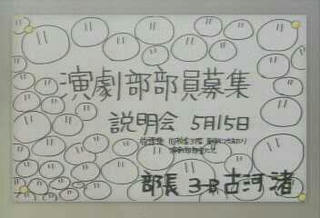 演劇部部員募集
説明会 5月15日
部長 3-B 古河 渚